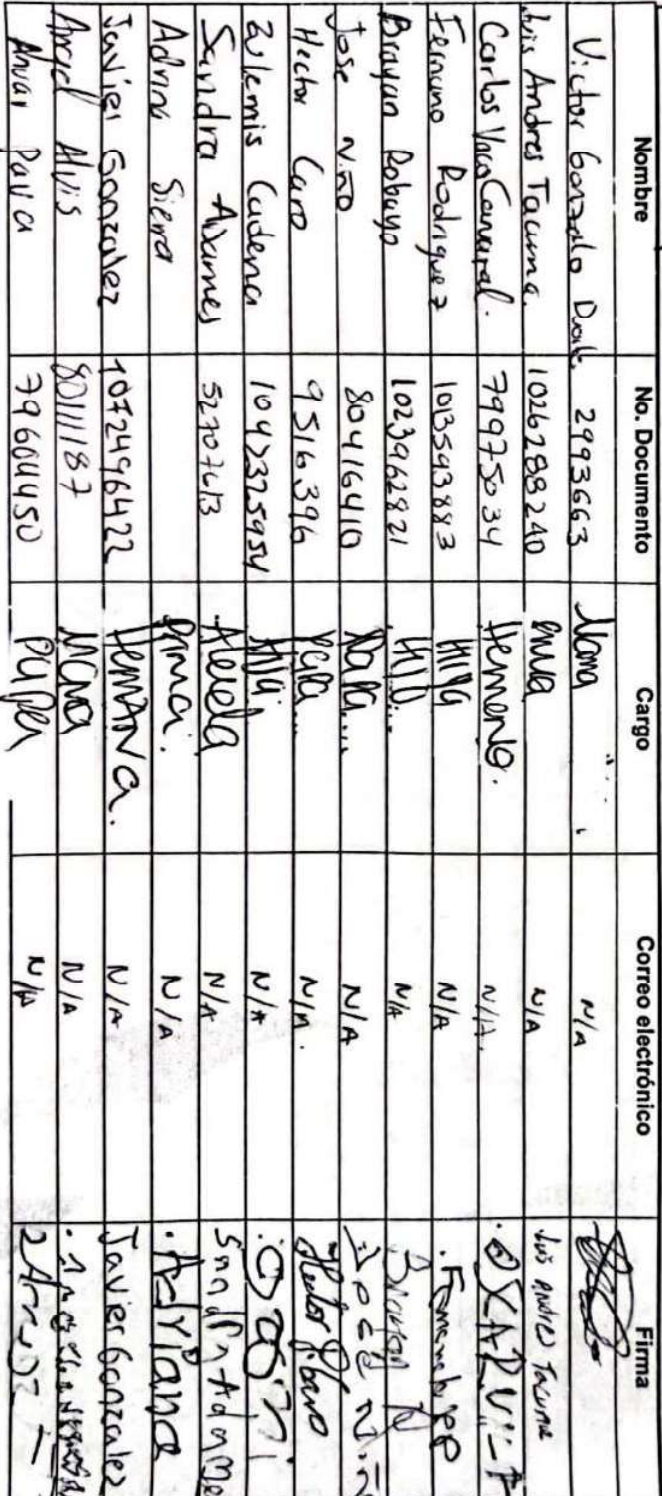 Nombre No. Documento Cargo Correo electrónico Firma
Victor Gonzalo 2993663 Mama N/A
Luis Andres Tacuma. 1026288240 N/A Luis Andres Tacuma
Carlos 79975034 Hermano. N/A.
Rodriguez 1013593883 Hija N/A
Brayan Robayo 1023962821 Hijo... N/A Brayan R
Jose Niño 80416410 Papa... N/A Jose Niñ
Hector Caro 9516396 Papa... N/A. Hector
Zulemis Cadena 1043325954 Hija. N/A
Sandra Adames 52707613 Abuela N/A Sandra Adame
Adrina Sierra Prima. N/A .Adriana
Javier Gonzalez 1072496422 HermANa. N/A Javier Gonzalez
Angel Alvis 80111187 Mama N/A
Anuar Pava 79604450 Papa N/A